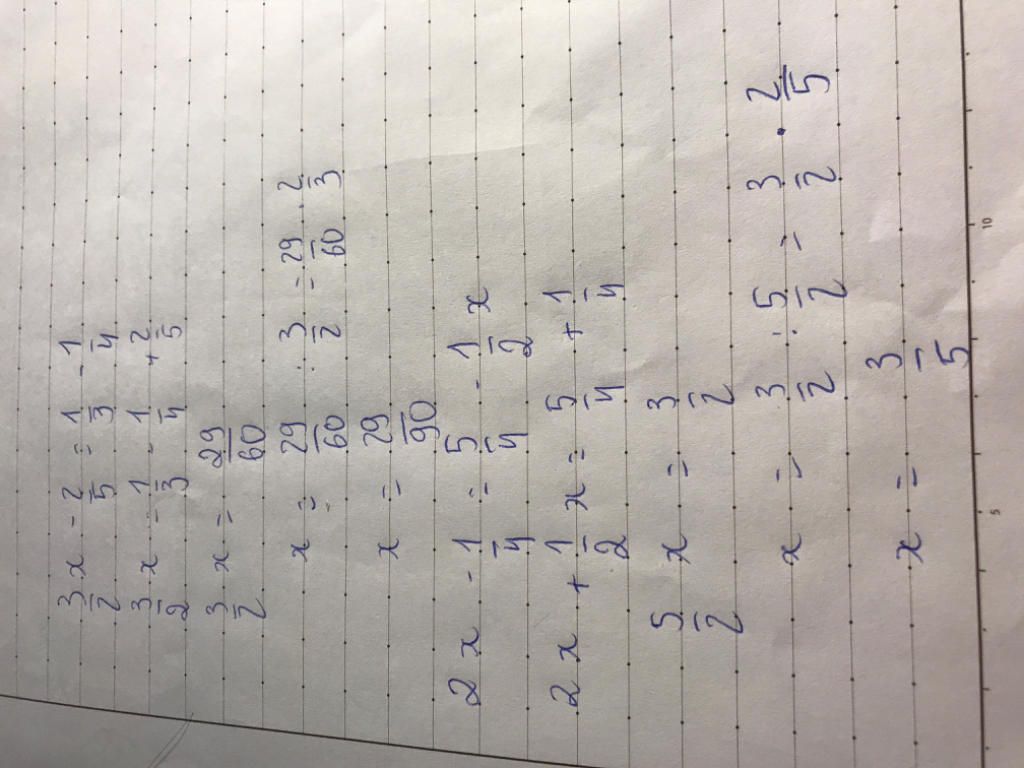 3/2 x - 2/5 = 1/3 - 1/4
3/2 x = 1/3 - 1/4 + 2/5
3/2 x = 29/60
x = 29/60 : 3/2 = 29/60 . 2/3
x = 29/90
2x - 1/4 = 5/4 - 1/2 x
2x + 1/2 x = 5/4 + 1/4
5/2 x = 3/2
x = 3/2 : 5/2 = 3/2 . 2/5
x = 3/5
5
10